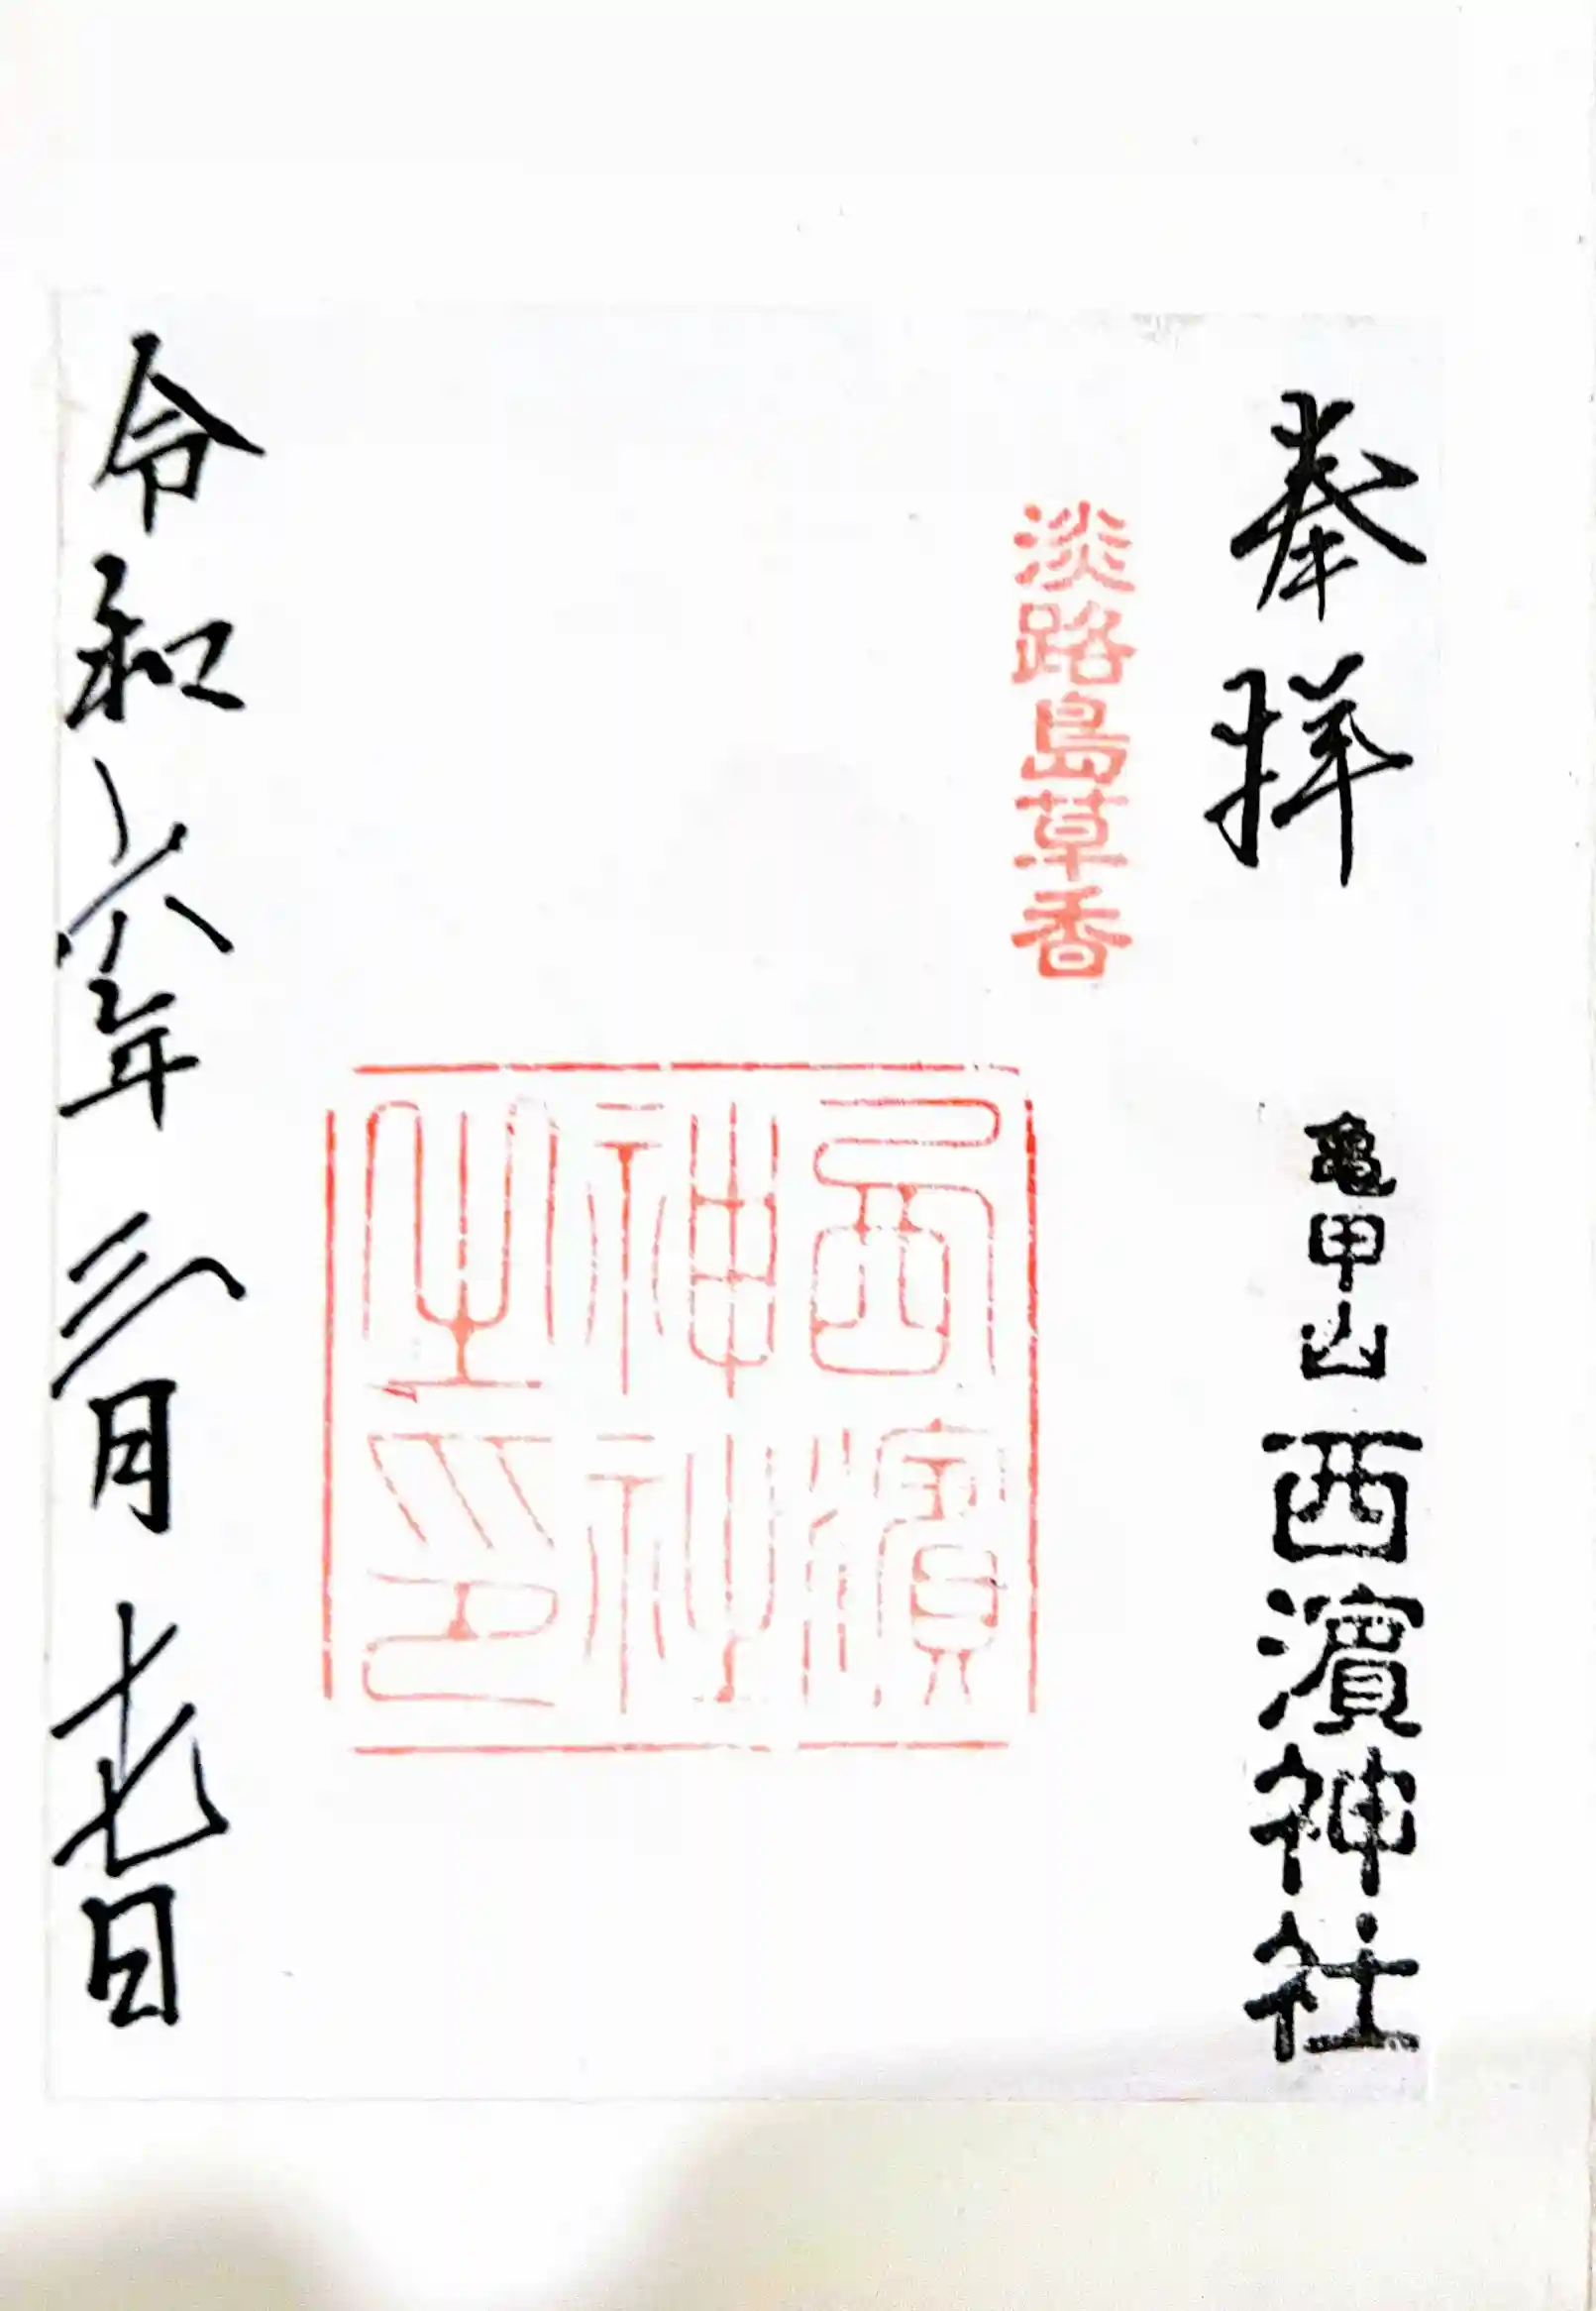 奉拝
亀甲山西濱神社
淡路島草香
西濱
神社
之印
令和六年三月十七日